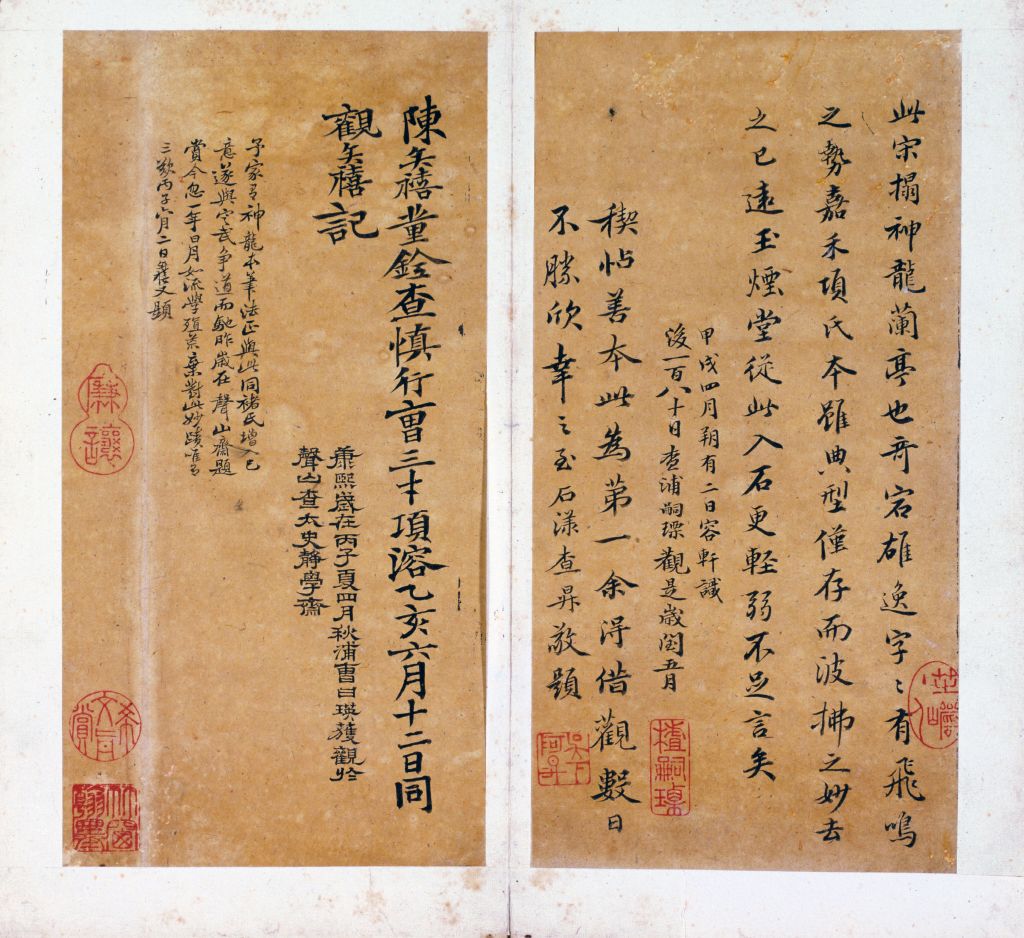 此宋搨神龍蘭亭也奇宕雄逸字〻有飛鳴
之勢嘉禾項氏本雖典型僅存而波拂之妙去
之已遠玉煙堂從此入石更輕弱不足言矣
甲戌四月朔有二日容軒識
後一百八十日查浦嗣瑮觀是歲閏五月
稧帖善本此為第一余得借觀數日
不勝欣幸之至石漾查昇敬題
陳奕禧童銓查慎行曹三才項溶乙亥六月十二日同
觀奕禧記
康熙歲在丙子夏四月秋浦曹曰瑛獲觀於
聲山查太史靜學齋
予家有神龍本筆法正與此同褚氏增入己
意遂與定武爭道而馳昨歲在聲山齋題
賞今忽一年日月如流學殖荒棄對此妙蹟唯有
三歎丙子六月二日題